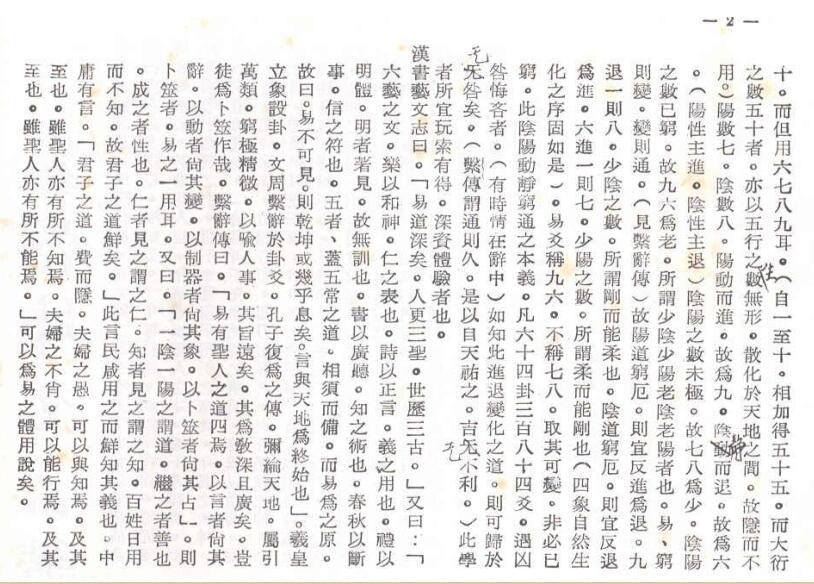 — 2 —
十。而但用六七八九耳。(自一至十。相加得五十五。而大衍
之數五十者。亦以五行之數無形。散化於天地之間。故隱而不
用)陽數七。陰數八。陽動而進。故爲九。陰動而退。故爲六
靜
。(陽性主進。陰性主退)陰陽之數未極。故七八爲少。陰陽
之數已窮。故九六爲老。所謂少陰少陽老陰老陽者也。易、窮
則變。變則通。(見繫辭傳)故陽道窮厄。則宜反進爲退。九
退一則八。少陰之數。所謂剛而能柔也。陰道窮厄。則宜反退
爲進。六進一則七。少陽之數。所謂柔而能剛也(四象自然生
化之序固如是)。易爻稱九六。不稱七八。取其可變。非必已
窮。此陰陽動靜窮通之本義。凡六十四卦三百八十四爻。遇凶
咎悔吝者。(有時情在辭中)如知此進退變化之道。則可歸於
无
咎矣。(繫傳謂通則久。是以自天祐之。吉无不利。)此學
无
者所宜玩索有得。深資體驗者也。
漢書藝文志曰。「易道深矣。人更三聖。世歷三古。」又曰:「
六藝之文。樂以和神。仁之表也。詩以正言。義之用也。禮以
明體。明者著見。故無訓也。書以廣聽。知之術也。春秋以斷
事。信之符也。五者、蓋五常之道。相須而備。而易爲之原。
故曰。易不可見。則乾坤或幾乎息矣。言與天地爲終始也」。羲皇
立象設卦。文周繫辭於卦爻。孔子復爲之傳。彌綸天地。屬引
萬類。窮極精微。以喻人事。其旨遠矣。其爲敎深且廣矣。豈
徒爲卜筮作哉。繫辭傳曰。「易有聖人之道四焉。以言者尙其
辭。以動者尙其變。以制器者尙其象。以卜筮者尙其占」。則
卜筮者。易之一用耳。又曰。「一陰一陽之謂道。繼之者善也
。成之者性也。仁者見之謂之仁。知者見之謂之知。百姓日用
而不知。故君子之道鮮矣。」此言民咸用之而鮮知其義也。中
庸有言。「君子之道。費而隱。夫婦之愚。可以與知焉。及其
至也。雖聖人亦有所不知焉。夫婦之不肖。可以能行焉。及其
至也。雖聖人亦有所不能焉。」可以爲易之體用說矣。